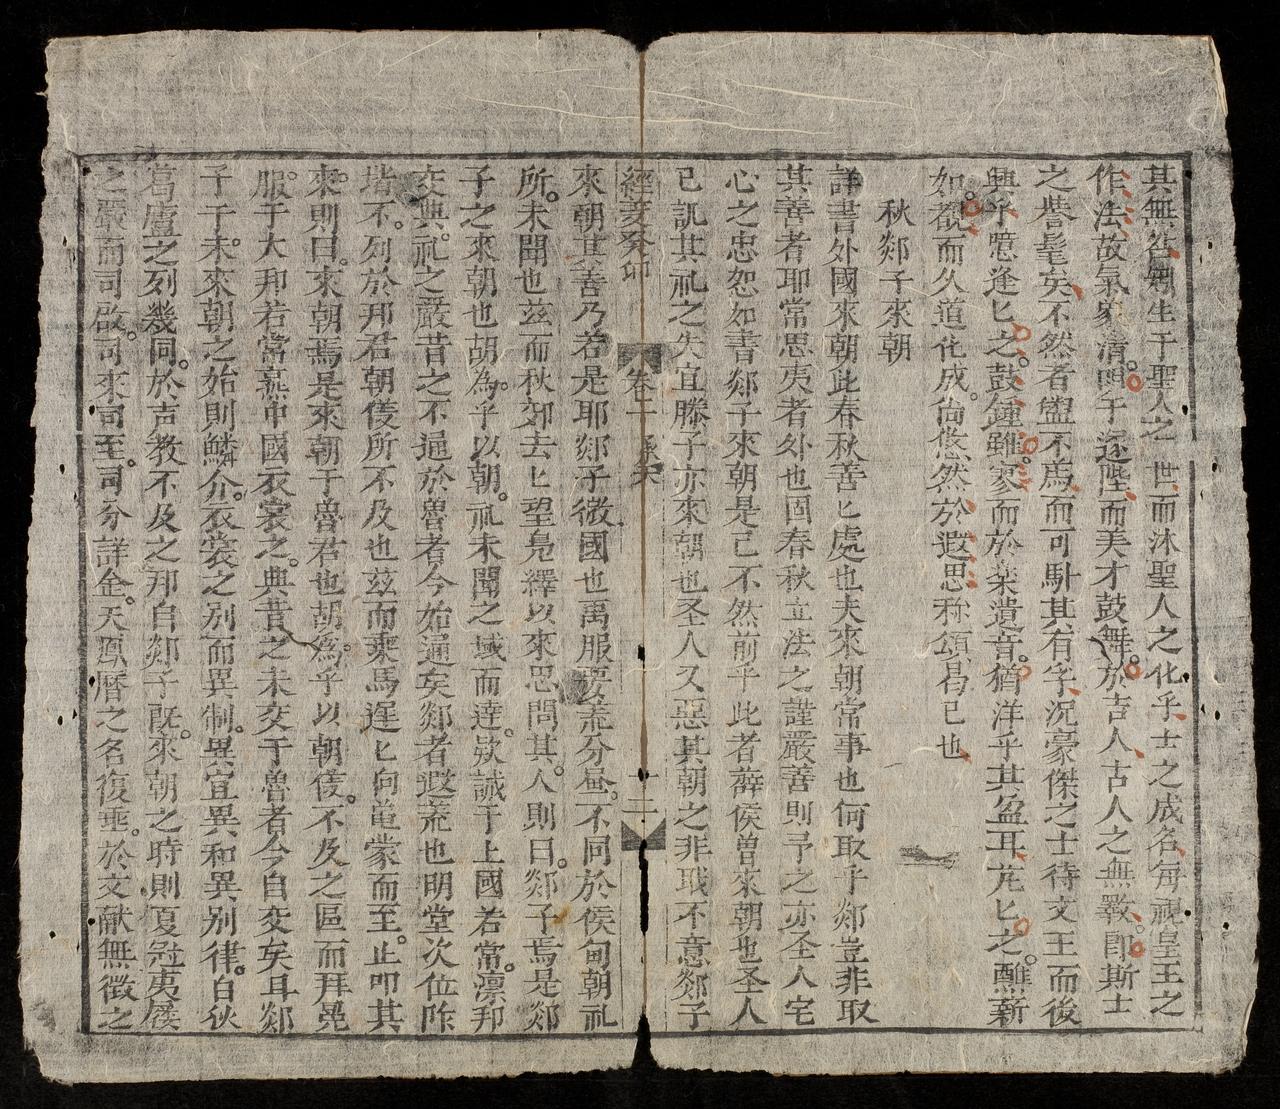 其無咎夠生于聖人之世而沐聖人之化乎士之成名毎視皇王之
作法故氣象清明于遂陛而美才鼓舞於吉人古人之無斁卽斯士
之譽髦矣不然者盥不薦而可馭其有孚況豪傑之士待文王而後
興乎噫逢匕之鼓鐘雖家而於樂遺音猶洋乎其盈耳芃匕之醮薪
如覩而久道化成尙悠然於遐思称頌曷已也
秋郯子來朝
詳書外國來朝此春秋善匕處也夫來朝常事也何取乎郯豈非取
其善者耶常思夷者外也固春秋立法之謹嚴善則予之亦圣人宅
心之忠恕如書郯子來朝是已不然前乎此者薛侯曾來朝也圣人
已訊其礼之失宜滕子亦來朝也圣人又惡其朝之非戢不意郯子
經
卷十
十二
來朝其善乃若是耶郯子微國也禹服要荒分昼不同於侯甸朝礼
所未聞也兹而秋郊去匕望凫繹以來思問其人則曰郯子焉是郯
子之來朝也胡為乎以朝礼未聞之域而逹欵誠于上國若常凛邦
交典礼之嚴昔之不通於魯者今始通矣郯者遐荒也明堂次位阼
堦不列於邦君朝儀所不及也兹而乘馬遲匕向龜蒙而至止叩其
來則曰來朝焉是來朝于魯君也胡為乎以朝儀不及之區而拜冕
服于大邦若常慕中國衣裳之典昔之未交于魯者今自交矣耳郯
子于未來朝之始則鱗介衣裳之別而異制異宜異和異別律白狄
葛廬之列幾同於声教不及之邦自郯子旣來朝之時則夏冠夷矦
之嚴而司啟司來司至司分詳金天鳳曆之名復垂於文献無徵之